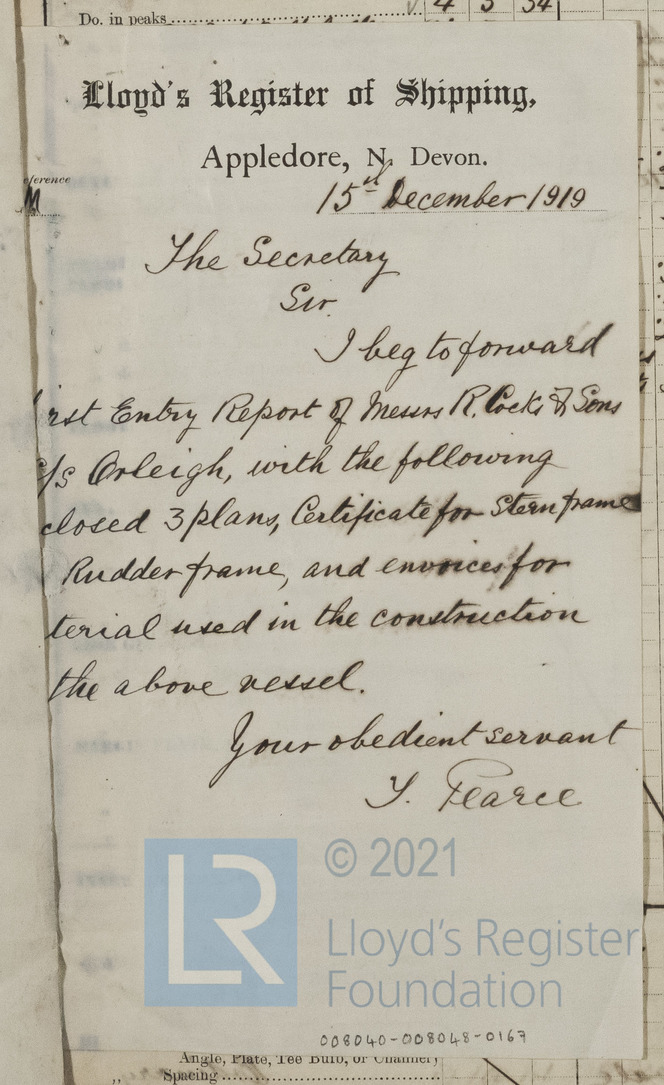 Do. in peaks 4 3 34
Lloyd's Register of Shipping,
Appledore, N. Devon.
eference
M
15th December 1919
The Secretary
Sir
I beg to forward
irst Entry Report of Messrs R. Cocks & Sons
s/s Orleigh, with the following
closed 3 plans, Certificate for Stern frame
Rudder frame, and envoices for
terial used in the construction
the above vessel.
Your obedient servant
Y. Pearce
LR
© 2021
Lloyd's Register
Foundation
008040-008048-0167
Angle, Plate, Tee Bulb, or Channel,
„ Spacing